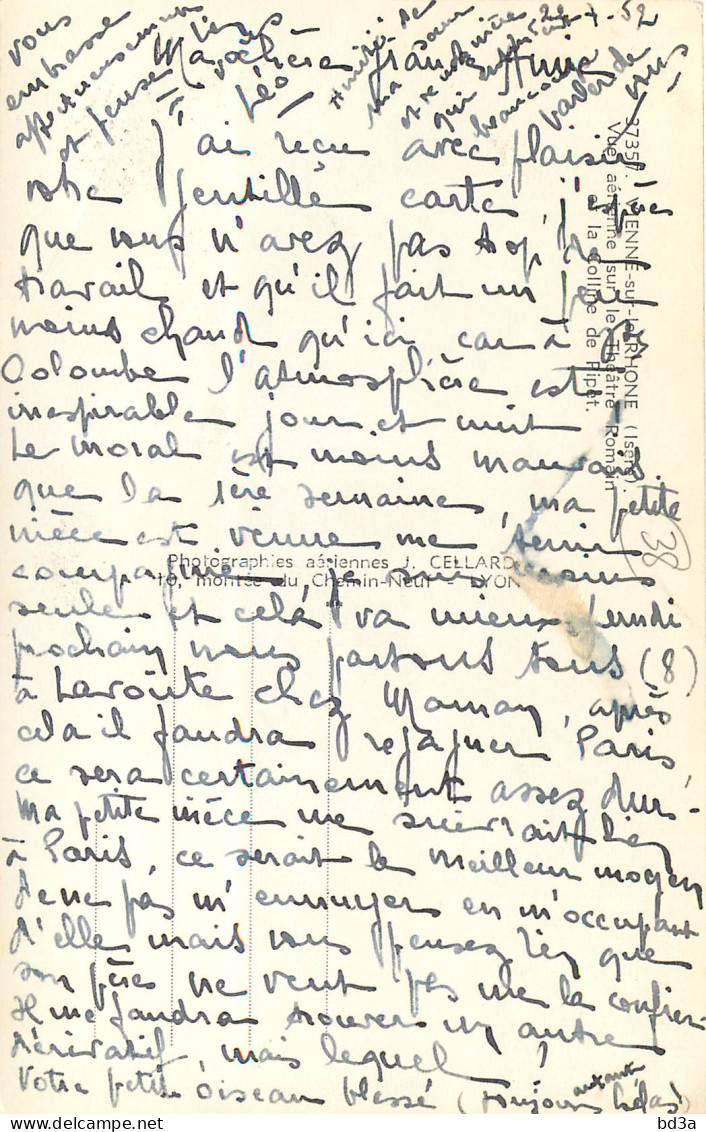 22-7-52
Ma chère grande Amie
J'ai reçu avec plaisir
votre gentille carte, j'espère
que vous n'avez pas trop de
travail et qu'il fait un peu
moins chaud qu'ici car à
Colombe l'atmosphère est
irrespirable jour et nuit
Le moral est moins mauvais
que la 1ère semaine, ma petite
nièce est venue me tenir
compagnie je suis moins
seule et cela va mieux. Lundi
prochain nous partons tous (8)
à Lavoûte chez Maman, après
cela il faudra regagner Paris
ce sera certainement assez dur.
Ma petite nièce me suivrait bien
à Paris, ce serait le meilleur moyen
de ne pas m'ennuyer en m'occupant
d'elle mais vous pensez bien que
son père ne veut pas me la confier.
Il me faudra trouver un autre
dérivatif, mais lequel !
Votre petit oiseau blessé (toujours autant hélas)
vous
embrasse
affectueusement
et pense
à vous
Amitié de
ma sœur
et de ma nièce
qui
beaucoup
parler de
vous
37357. VIENNE-sur-le-RHONE (Isère).
Vue aérienne sur le Théâtre Romain
et la Colline de Pipet.
Photographies aériennes J. CELLARD
10, montée du Chemin-Neuf - LYON
38
bd3a
www.delcampe.net